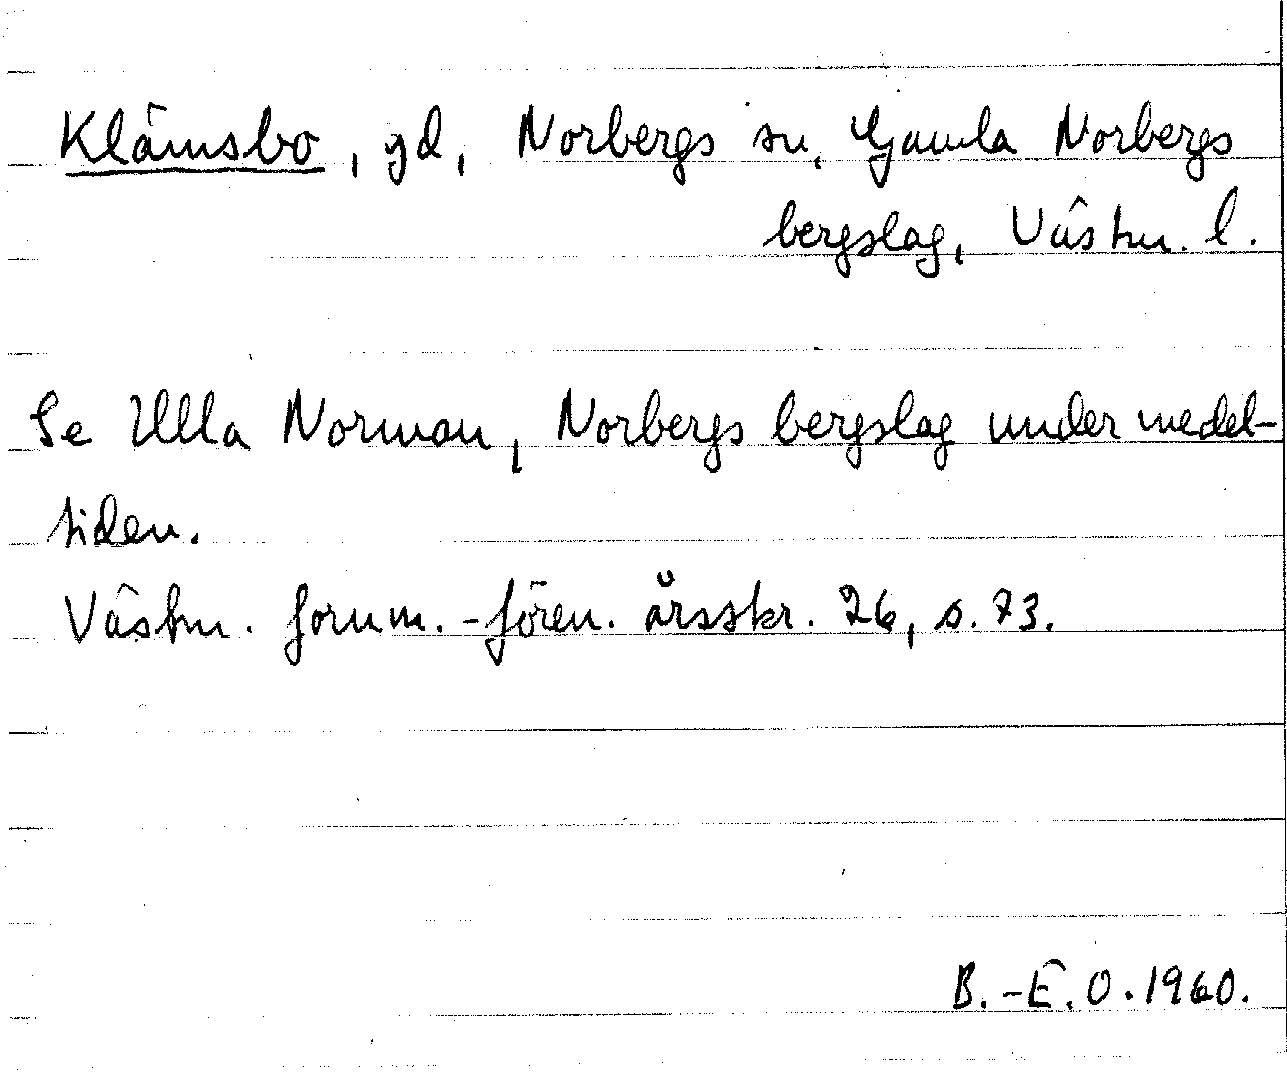 Klämsbo, gd, Norbergs sn, Gamla Norbergs
bergslag, Västm. l.
Se Ulla Norman, Norbergs bergslag under medel-
tiden.
Västm. fornm.-fören. årsskr. 26, s. 73.
B.-E. O. 1960.